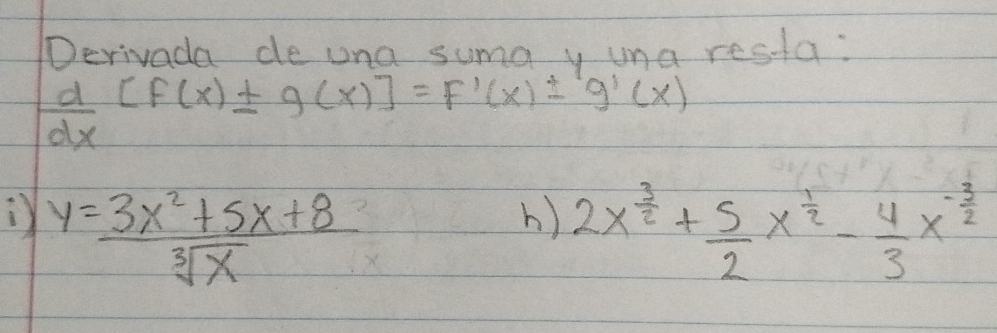 Derivada de una suma y una resta:
d/dx [f(x) ± g(x)] = F'(x) ± g'(x)
i) y = (3x² + 5x + 8)/∛x
h) 2x^(3/2) + 5/2 x^(1/2) - 4/3 x^(-3/2)